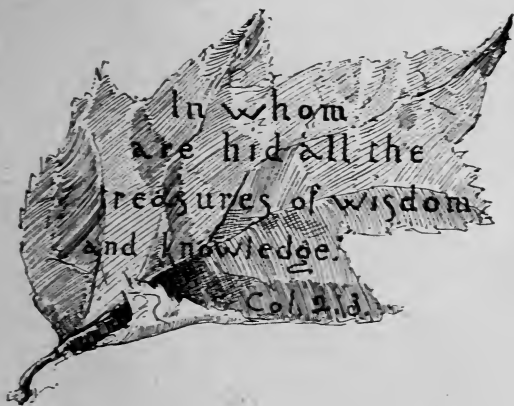 In whom
are hid all the
treasures of wisdom
and knowledge.
Col. 2.3.